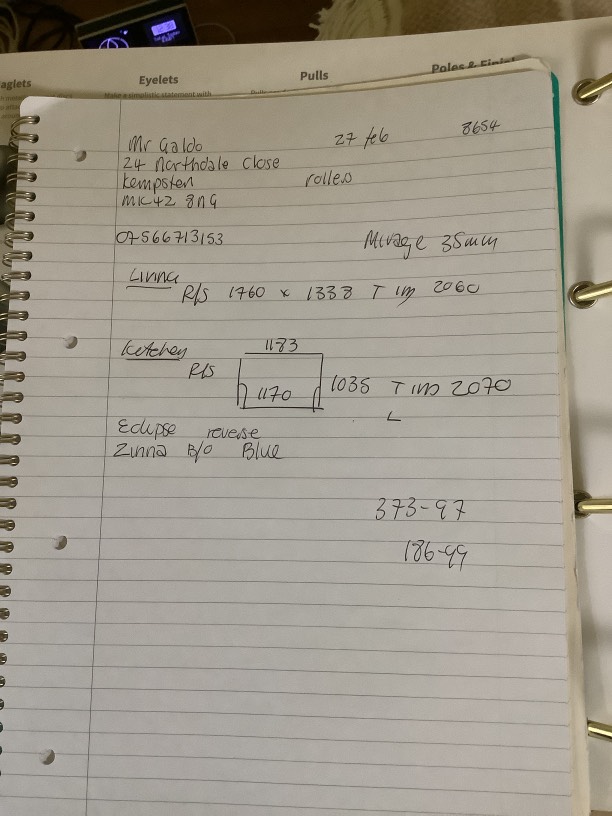 aglets Eyelets Pulls Poles &
Mr Galdo 27 feb 8654
24 Northdale Close
Kempston rollers
MK42 8NG
07566713153 Mirage 35mm
Linna
R/S 1760 x 1338 T im 2060
Kitchen 1183
R/S 1170 1035 T im 2070
L
Eclipse reverse
Zinna B/o Blue
373-97
186-99